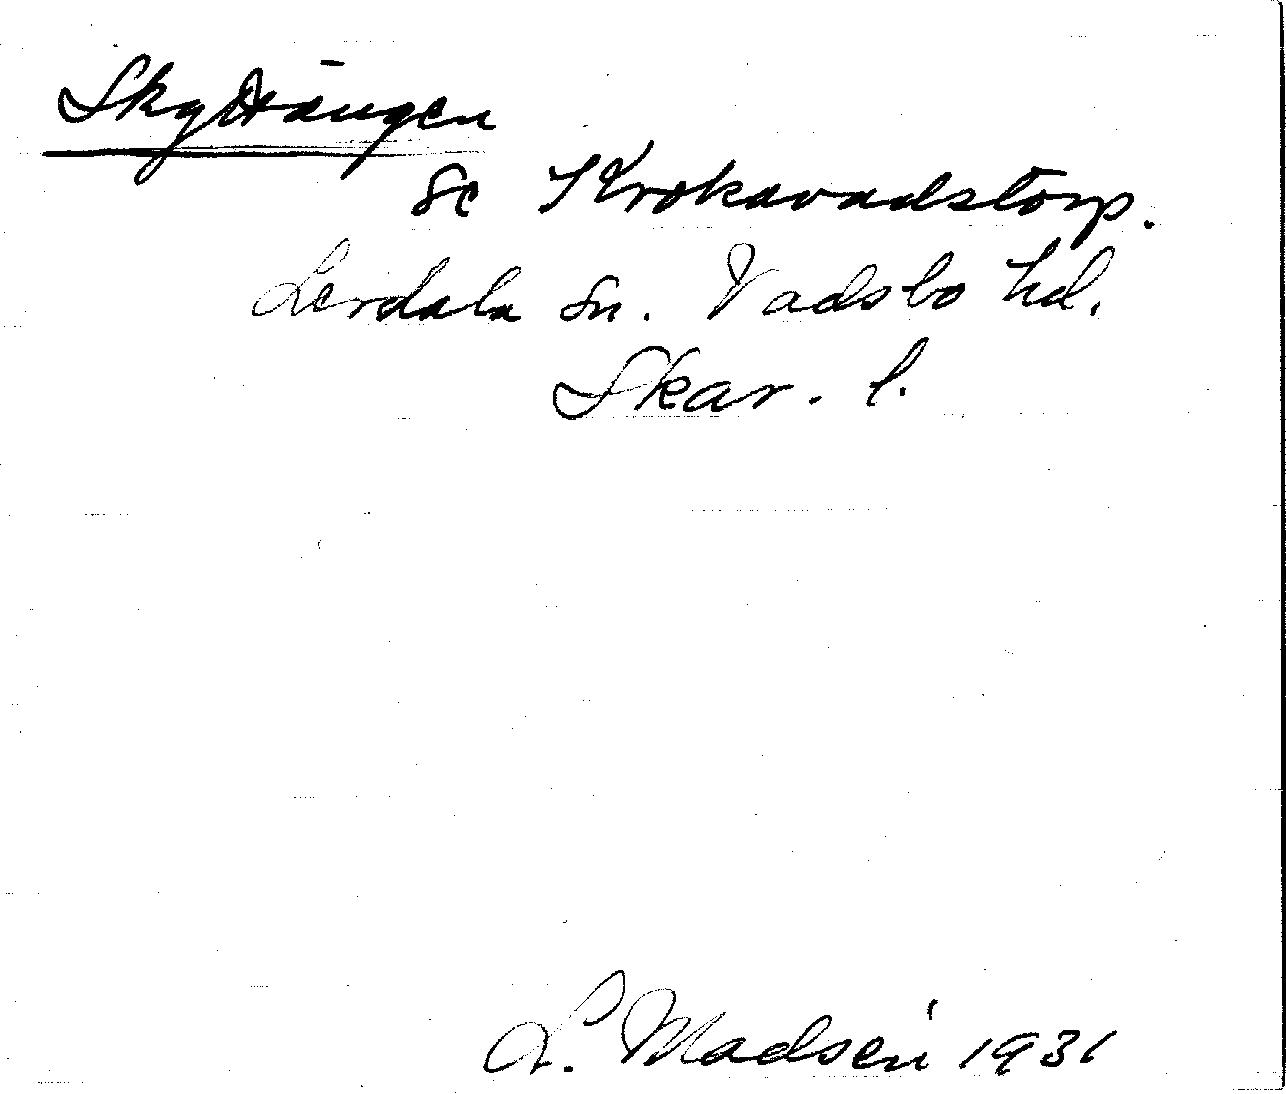 Skyttängen
se Krokavadstorp.
Lerdala sn. Vadsbo hd.
Skar. l.
L. Madsén 1931